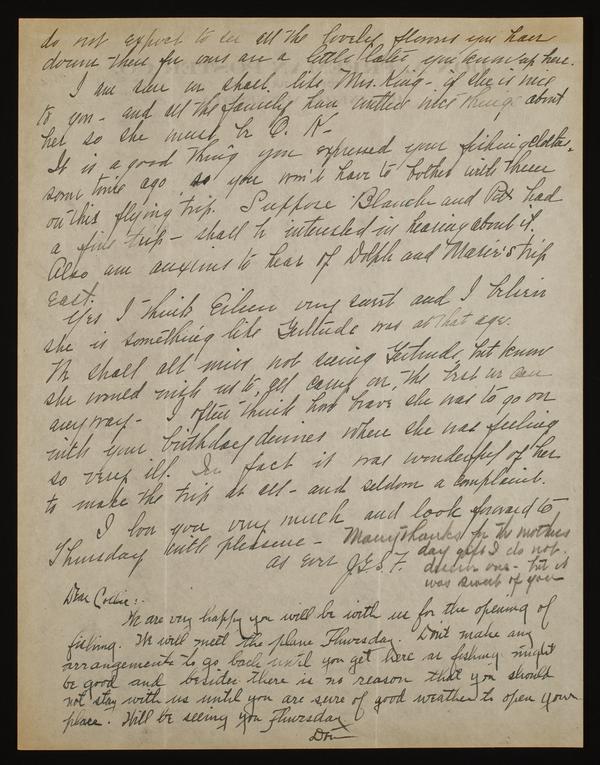 do not expect to see all the lovely flowers you have
down there for ours are a little later, you know up here.
I am sure we shall like Mrs. King - if she is nice
to you - and all the family have written nice things about
her so she must be O. K -
It is a good thing you expressed your fishing clothes,
some time ago so you won't have to bother with them
on this flying trip. Suppose Blanche and Pat had
a fine trip - shall be interested in hearing about it.
Also am anxious to hear of Dolph and Marie's trip
East.
Yes I think Eileen very sweet and I believe
she is something like Gertrude was at that age.
We shall all miss not seeing Gertrude, but know
she would wish us to get carry on, the best we can
anyway - I often think how brave she was to go on
with your birthday dinner where she was feeling
so very ill. In fact it was wonderful of her
to make the trip at all - and seldom a complaint.
I love you very much and look forward to
Thursday with pleasure -
as ever J.E.S.F.
Many thanks for the mothers
day gift I do not
deserve one - but it
was sweet of you
Dear Collie:
We are very happy you will be with us for the opening of
fishing. We will meet the plane Thursday. Don't make any
arrangements to go back until you get here as fishing might
be good and besides there is no reason that you should
not stay with us until you are sure of good weather to open your
place. Will be seeing you Thursday
Don